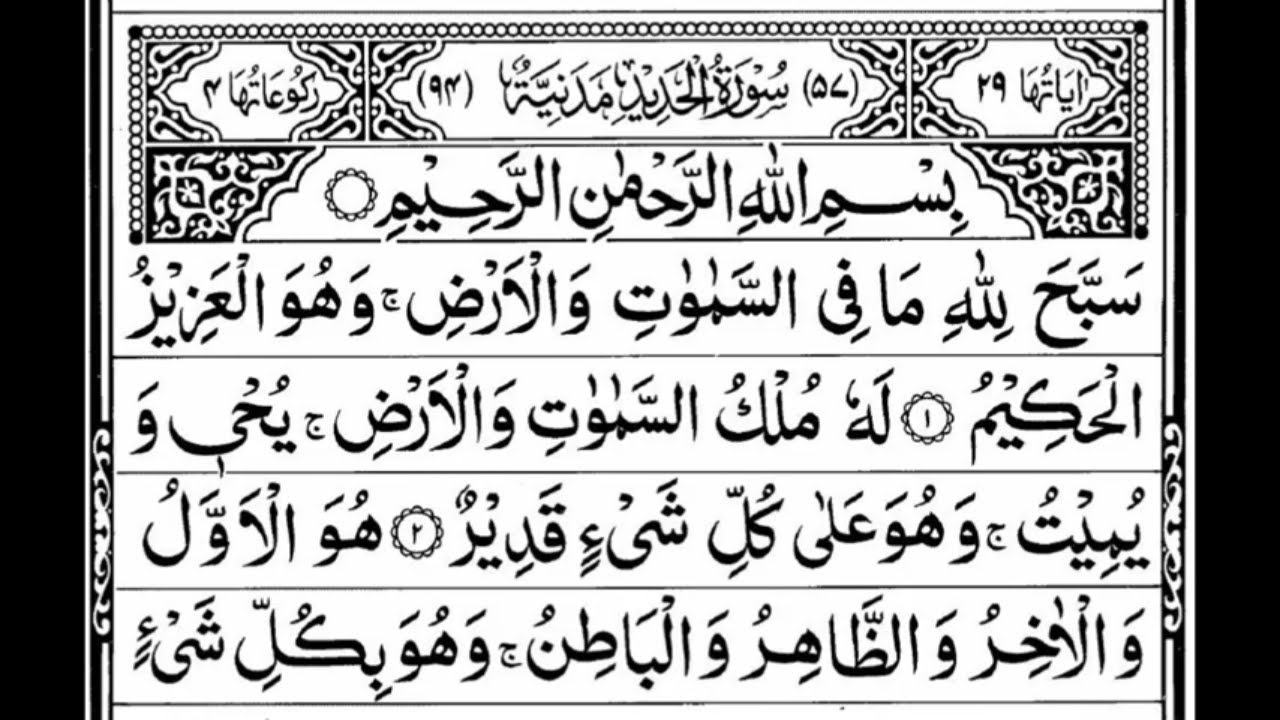 اٰيَاتُهَا ۲۹ (۵۷) سُوْرَةُ الْحَدِيْدِ مَدَنِيَّةٌ (۹۴) رُكُوْعَاتُهَا ۴
بِسْمِ اللّٰهِ الرَّحْمٰنِ الرَّحِيْمِ
سَبَّحَ لِلّٰهِ مَا فِى السَّمٰوٰتِ وَالْاَرْضِ ۚ وَهُوَ الْعَزِيْزُ
الْحَكِيْمُ ۱ لَهٗ مُلْكُ السَّمٰوٰتِ وَالْاَرْضِ ۚ يُحْىٖ وَ
يُمِيْتُ ۚ وَهُوَ عَلٰى كُلِّ شَىْءٍ قَدِيْرٌ ۲ هُوَ الْاَوَّلُ
وَالْاٰخِرُ وَالظَّاهِرُ وَالْبَاطِنُ ۚ وَهُوَ بِكُلِّ شَىْءٍ